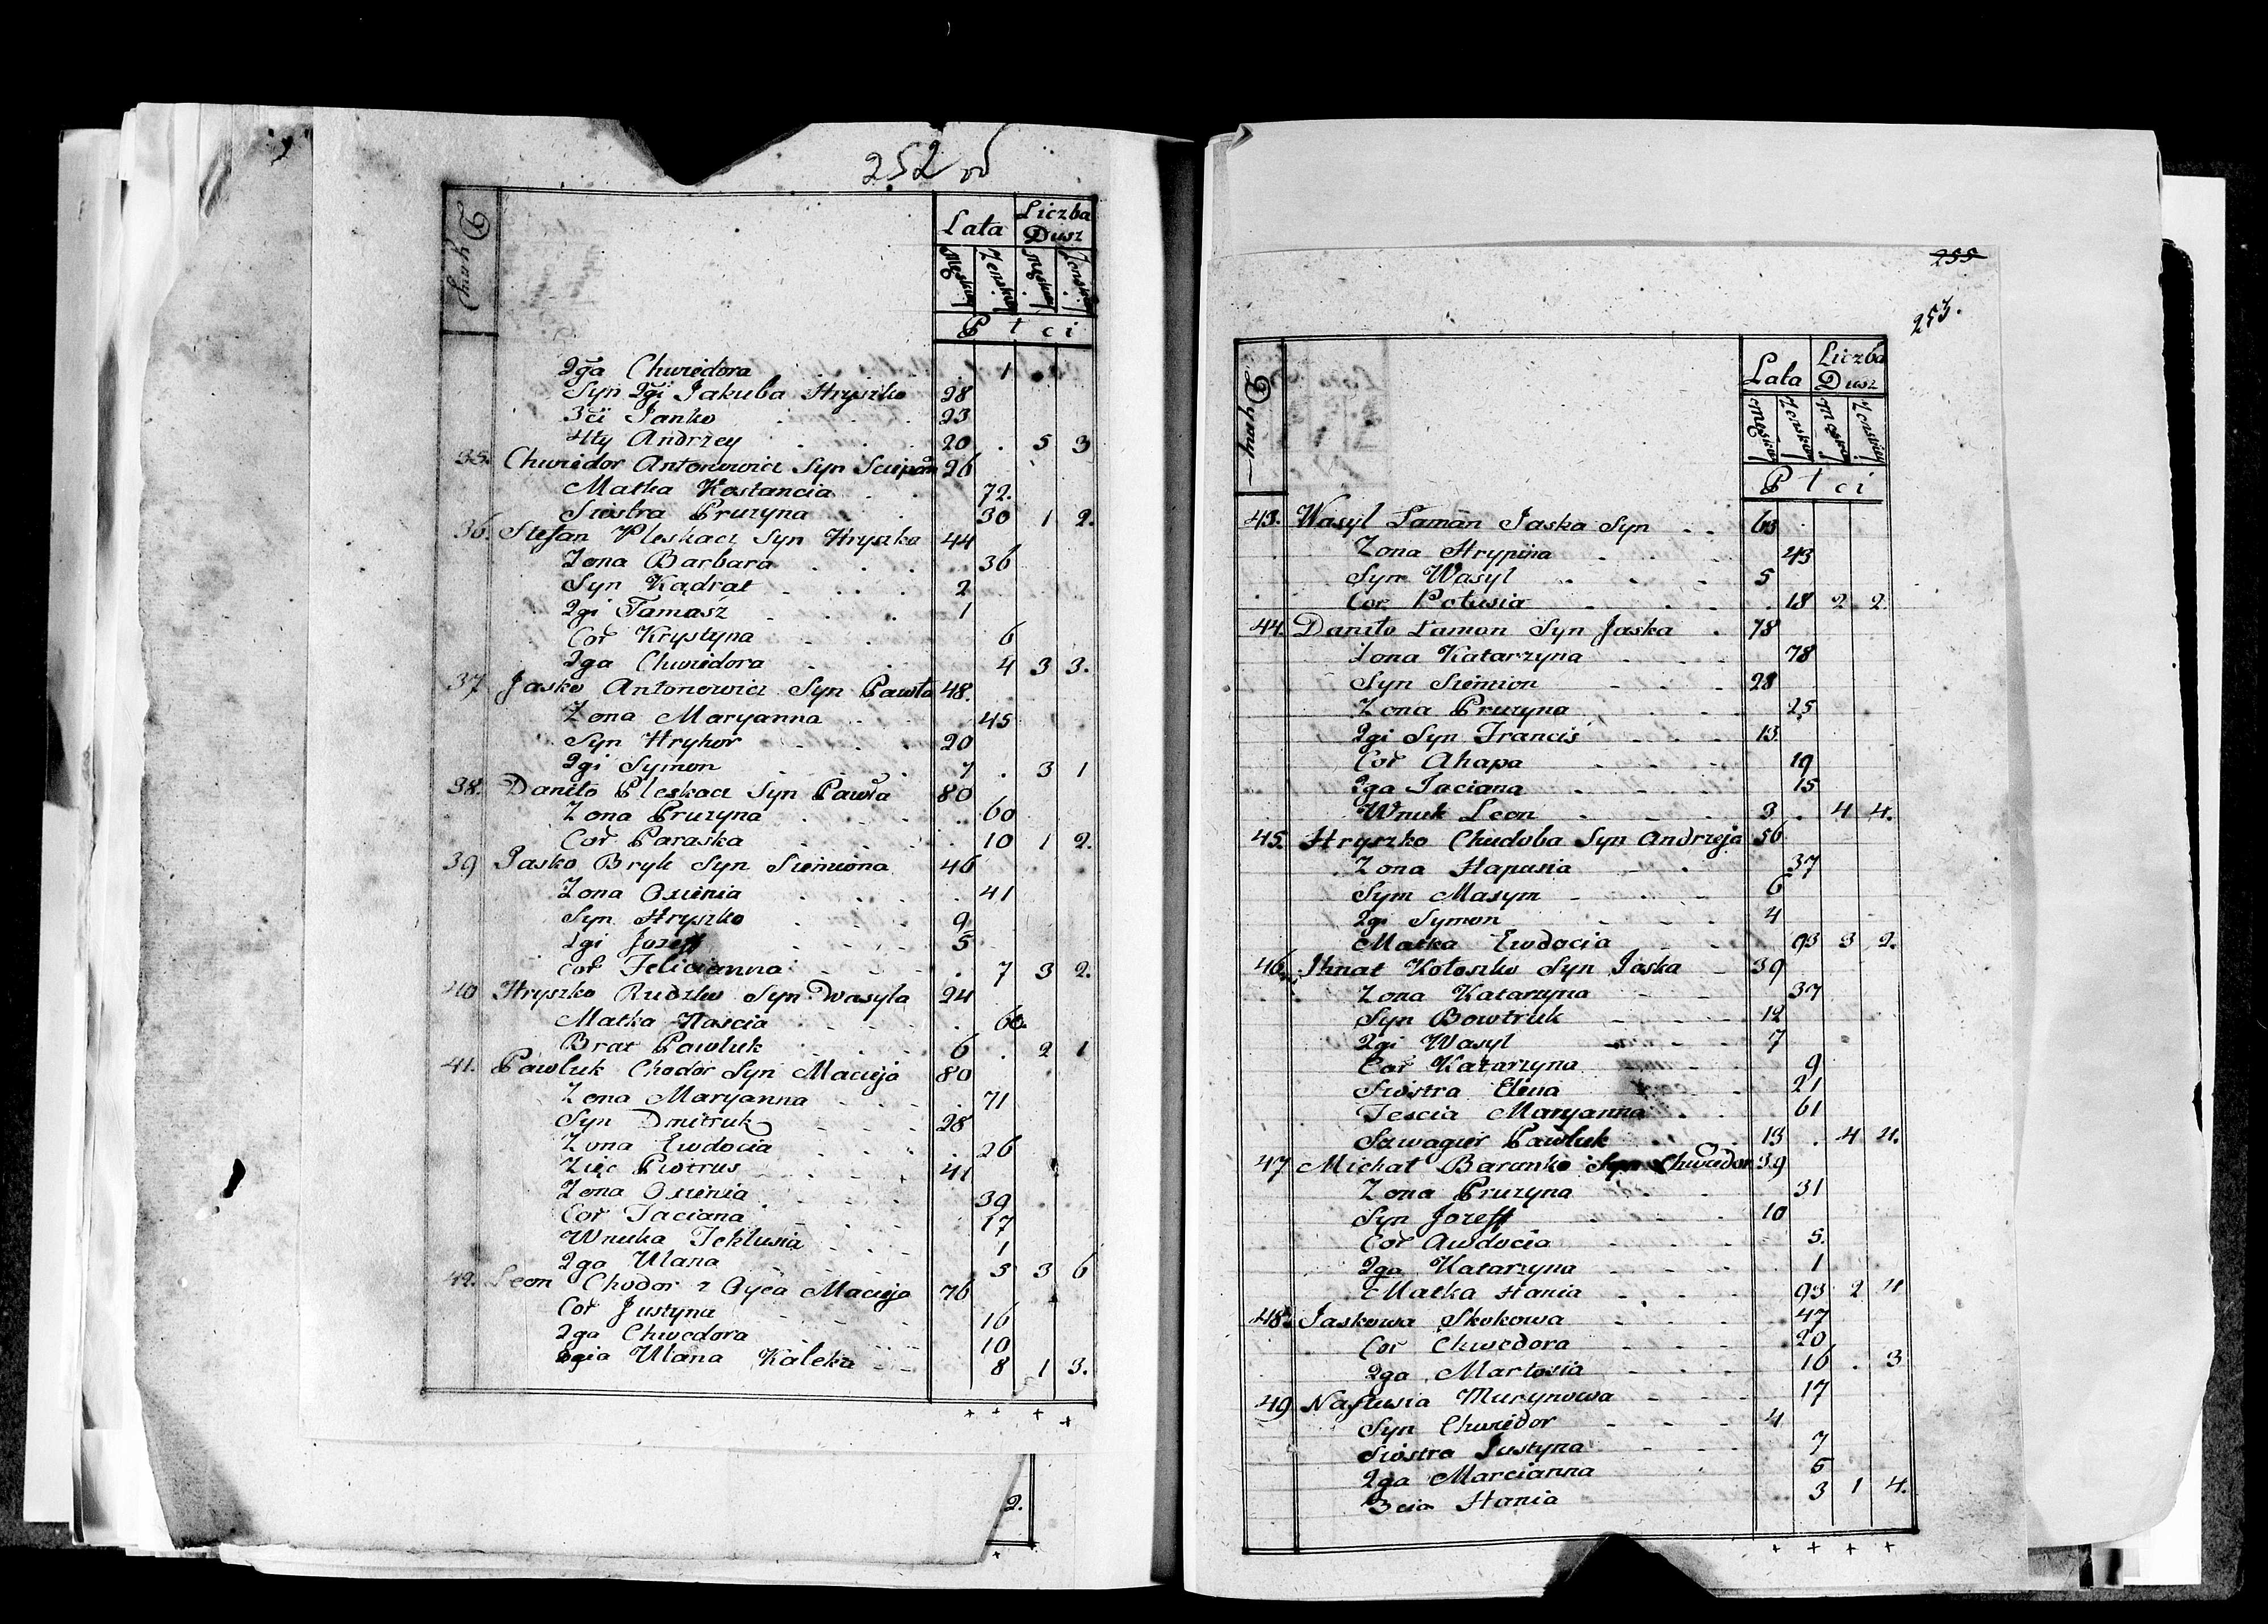 252 об
Dymy
Lata Liczba Dusz
Męskiey Zeńskiey Męskiey Zeńskiey
P ł c i
2ga Chwiedora 1
Syn 2gi Jakuba Hryszko 28
3ci Janko 23
4ty Andrzey 20 5 3
35. Chwiedor Antonowicz Syn Sciepana 26
Matka Kostancia 72.
Siostra Pruzyna 30 1 2.
36. Stefan Pleskacz Syn Hryszka 44
Zona Barbara 36
Syn Kądrat 2
2gi Tamasz 1
Cor Krystyna 6
2ga Chwiedora 4 3 3.
37 Jasko Antonowicz Syn Pawła 48.
Zona Maryanna 45
Syn Hryhor 20
2gi Symon 7 3 1
38. Daniło Pleskacz Syn Pawła 80
Zona Pruzyna 60
Cor Paraska 10 1 2.
39 Jasko Bryk Syn Siemiona 46
Zona Oxienia 41
Syn Hryszko 9
2gi Jozeff 5
Cor Felicianna 7 3 2.
40 Hryszko Rudzko Syn Wasyla 24
Matka Nascia 60.
Brat Pawluk 6 2 1
41. Pawluk Chodor Syn Macieja 80
Zona Maryanna 71
Syn Dmitruk 28
Zona Ewdocia 26
Zięc Piotrus 41
Zona Oxienia 39
Cor Taciana 17
Wnuka Teklusia 1
2ga Ulana 3 3 6
42. Leon Chodor z Oyca Macieja 76
Cor Justyna 16
2ga Chwedora 10
3cia Ulana Kaleka 8 1 3.
+ + + +
2.
+
255
253.
Dymy
Lata Liczba Dusz
Męskiey Zeńskiey Męskiey Zeńskiey
P ł c i
43. Wasyl Łaman Jaska Syn 63
Zona Hrypina 43
Syn Wasyl 5
Cor Połusia 18 2 2
44. Daniło Łamon Syn Jaska 78
Zona Katarzyna 78
Syn Siemion 28
Zona Pruzyna 25
2gi Syn Francis 13.
Cor Ahapa 19
2ga Taciana 15
Wnuk Leon 3 4 4.
45. Hryszko Chudoba Syn Andrzeja 56
Zona Hapusia 37
Syn Masym 6
2gi Symon 4
Matka Ewdocia 93 3 2.
46. Ihnat Kołoszko Syn Jaska 39
Zona Katarzyna 37
Syn Bowtruk 12
2gi Wasyl 7
Cor Katarzyna 9
Siostra Elena 21
Tescia Maryanna 61
Szwagier Pawluk 13 4 4.
47 Michał Baranko Syn Chwiedor 39
Zona Pruzyna 31
Syn Jozeff 10
Cor Awdocia 5.
2ga Katarzyna 1
Matka Hania 93 2 4
48. Jaskowa Skokowa 47
Cor Chwedora 20
2ga Martosia 16 3
49 Nastusia Murynowa 17
Syn Chwiedor 4
Siostra Justyna 7
2ga Marcianna 5
3cia Hania 3 1 4.
+ + + +